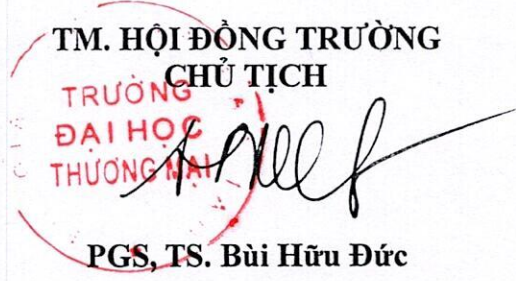 TM. HỘI ĐỒNG TRƯỜNG
CHỦ TỊCH
TRƯỜNG
ĐẠI HỌC
THƯƠNG MẠI
PGS, TS. Bùi Hữu Đức